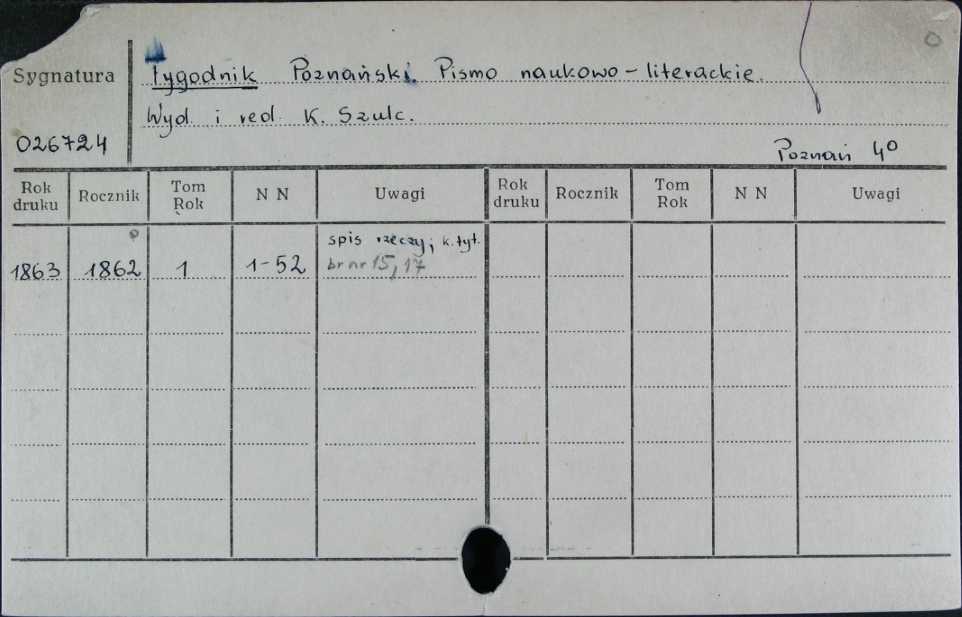 Sygnatura
Tygodnik Poznański. Pismo naukowo-literackie.
Wyd. i red. K. Szulc.
026724
Poznań 4⁰
Rok druku Rocznik Tom Rok N N Uwagi Rok druku Rocznik Tom Rok N N Uwagi
spis rzeczy; k. tyt.
1863 1862 1 1-52 br nr 15, 17